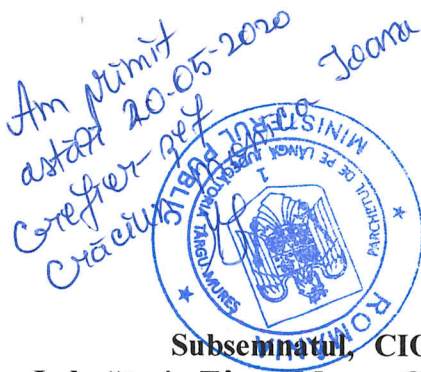 Am primit
astăzi 20-05-2020
Grefier-șef
Crăciun
Ioana
ROMÂNIA
MINISTERUL PUBLIC
PARCHETUL DE PE LÂNGĂ JUDECĂTORIA TÂRGU-MUREȘ
1
Subsemnatul, CIO